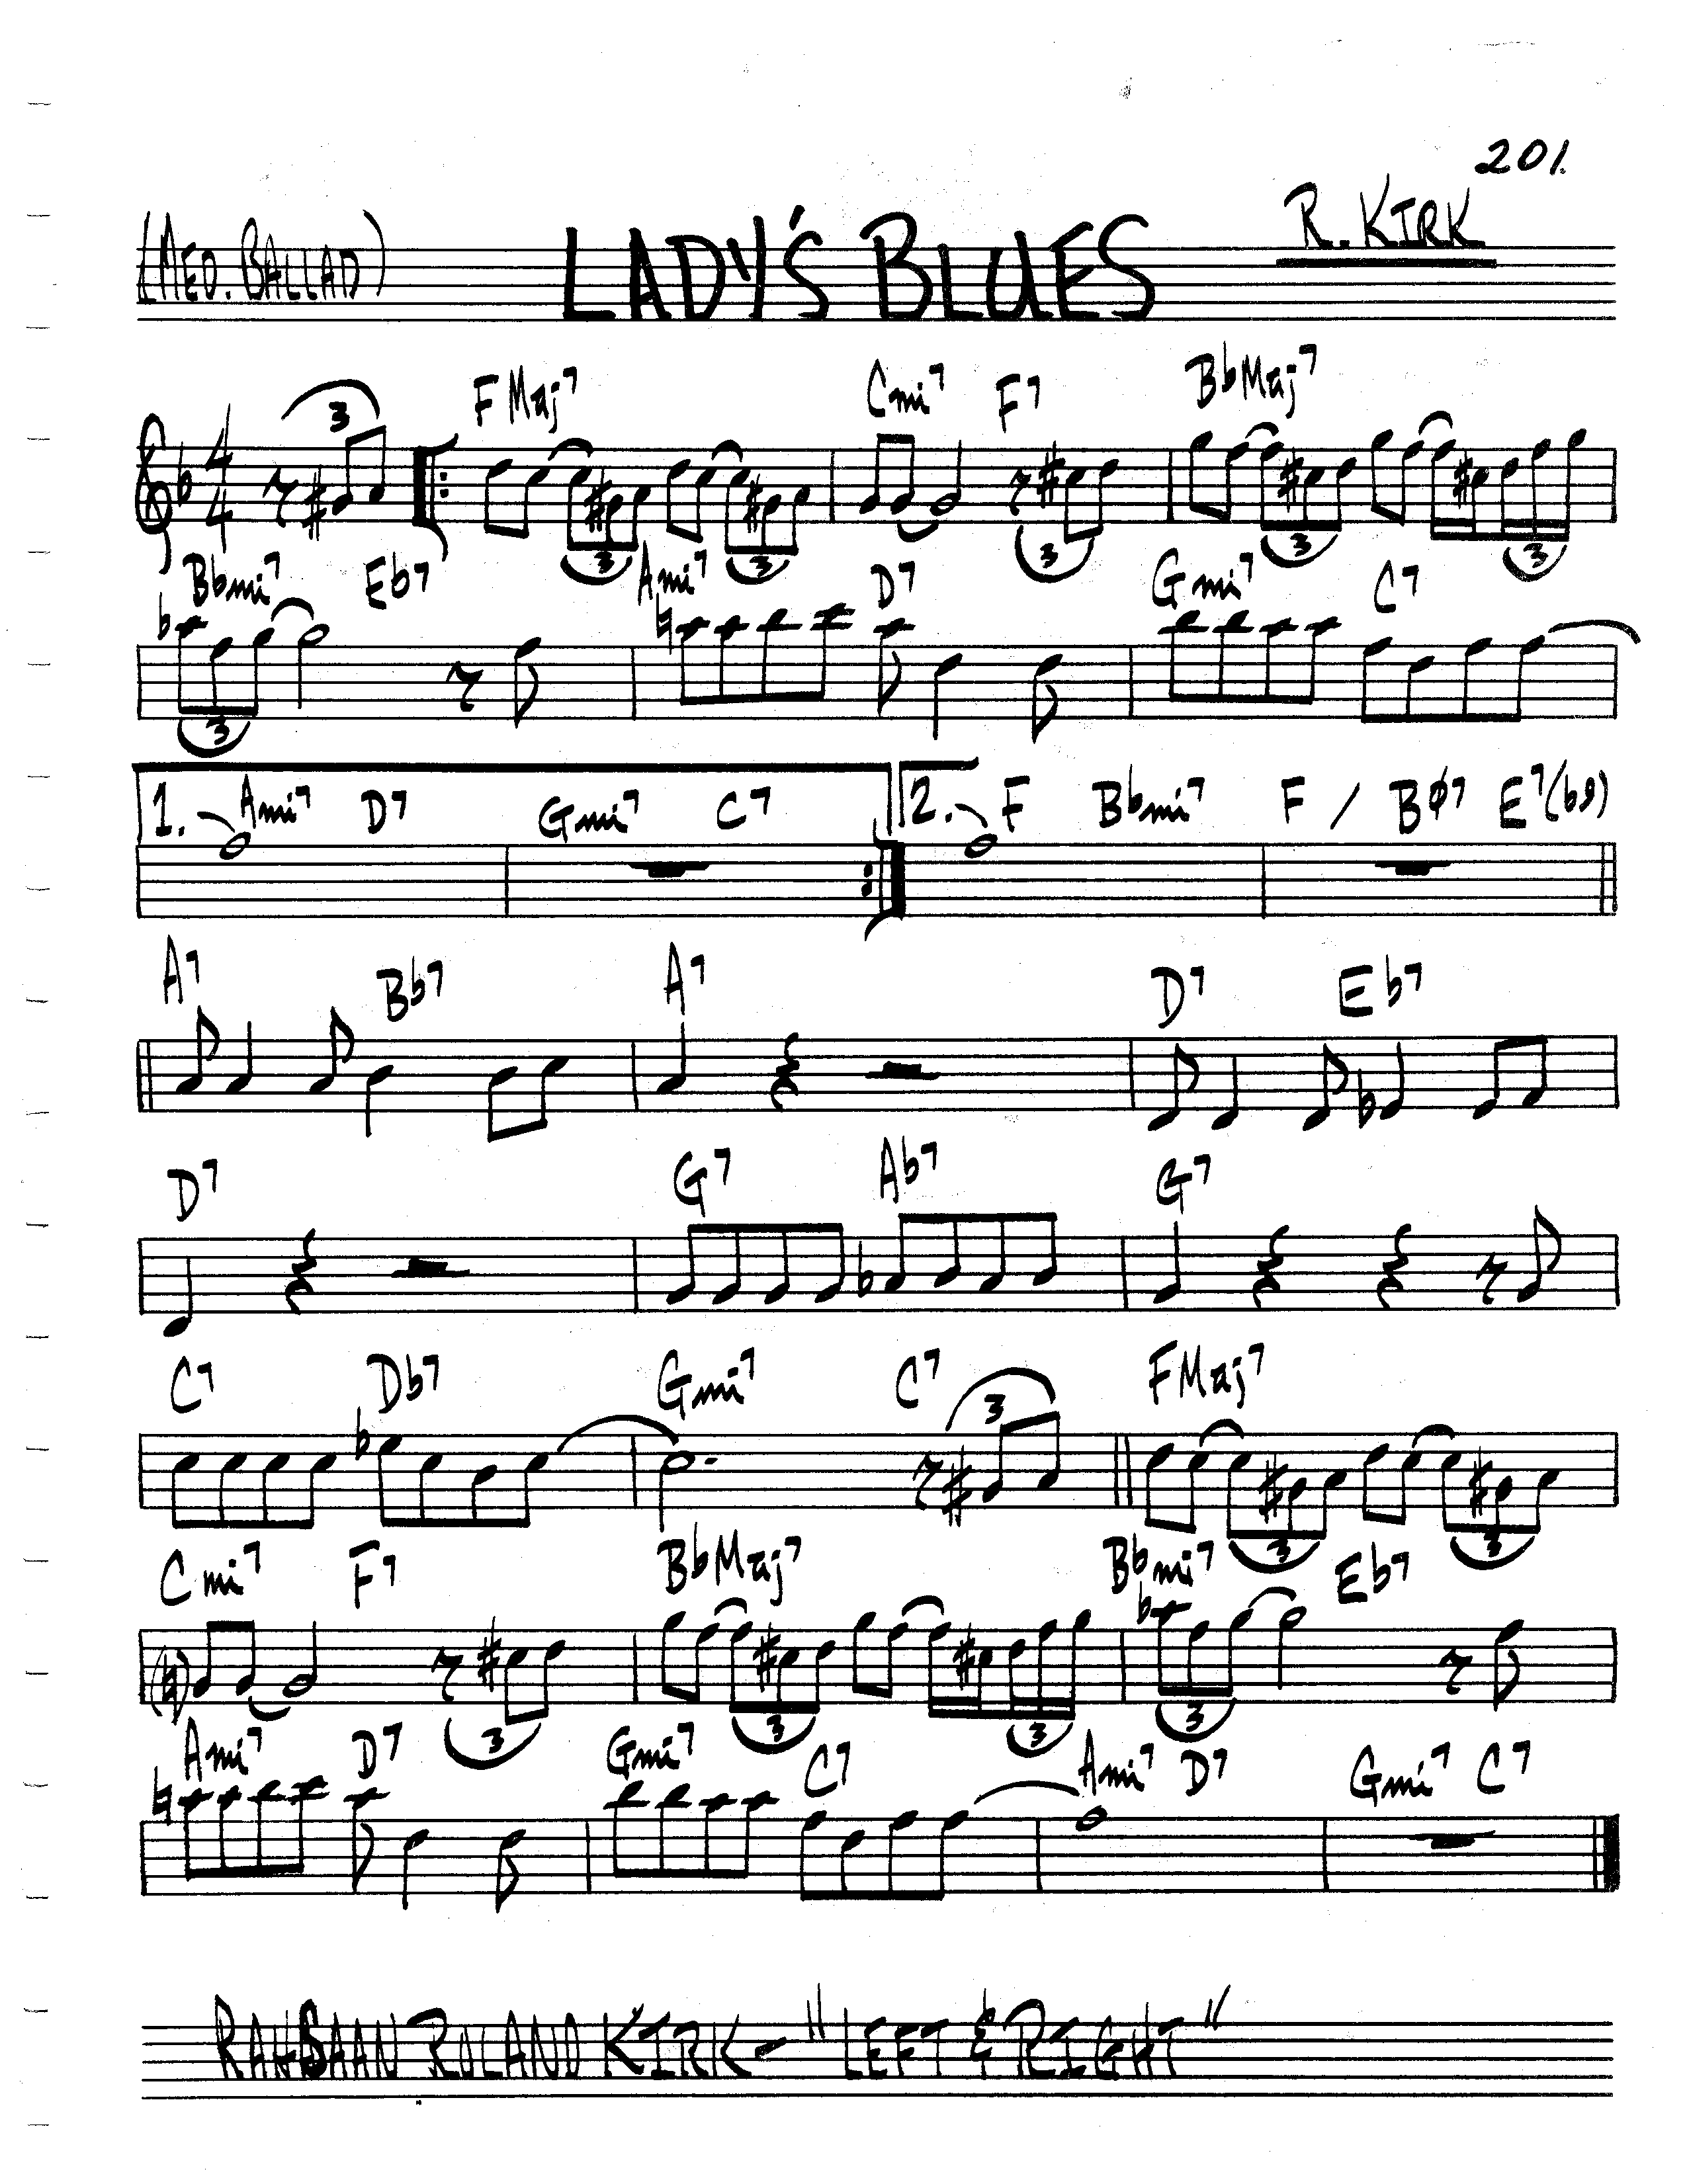 201.
(MED. BALLAD) LADY'S BLUES R. KIRK
3 FMaj7 Cmi7 F7 BbMaj7
4 4
3 3 3 3 3
Bbmi7 Eb7 Ami7 D7 Gmi7 C7
3
1. Ami7 D7 Gmi7 C7 2. F Bbmi7 F / BØ7 E7(b9)
A7 Bb7 A7 D7 Eb7
D7 G7 Ab7 G7
C7 Db7 Gmi7 C7 3 FMaj7
3 3
Cmi7 F7 BbMaj7 Bbmi7 Eb7
3 3 3 3
Ami7 D7 Gmi7 C7 Ami7 D7 Gmi7 C7
RAHSAAN ROLAND KIRK - "LEFT & RIGHT"